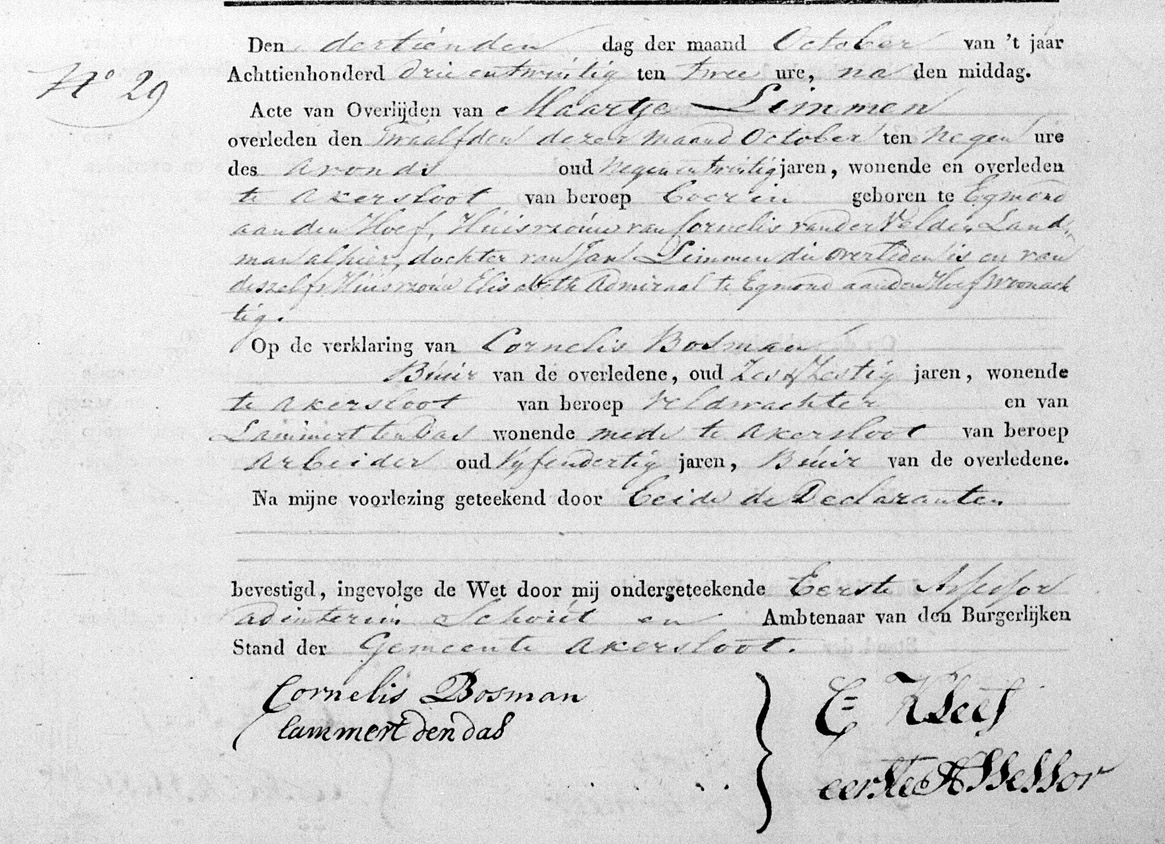 Den dertienden dag der maand October van 't jaar
No 29
Achttienhonderd drie entwintig ten twee ure, na den middag.
Acte van Overlijden van Maartje Limmen
overleden den Twaalfden dezer maand October ten negen ure
des avonds oud negenentwintig jaren, wonende en overleden
te Akersloot van beroep Boerin geboren te Egmond
aan den Hoef, Huisvrouw van Cornelis van der Velden Land-
man alhier, dochter van Jan Limmen die overleden is en van
deszelfs Huisvrouw Elisabeth Admiraal te Egmond aan den Hoef woonach
tig.
Op de verklaring van Cornelis Bosman
Buur van de overledene, oud Zes & Zestig jaren, wonende
te Akersloot van beroep Veldwachter en van
Lammert ten Das wonende mede te Akersloot van beroep
Arbeider oud Vyfendertig jaren, Buur van de overledene.
Na mijne voorlezing geteekend door beide de Declaranten
bevestigd, ingevolge de Wet door mij ondergeteekende Eerste Assessor
adinterim Schout en Ambtenaar van den Burgerlijken
Stand der Gemeente Akersloot.
Cornelis Bosman
lammert den das
C= Kleef
eerste Assessor